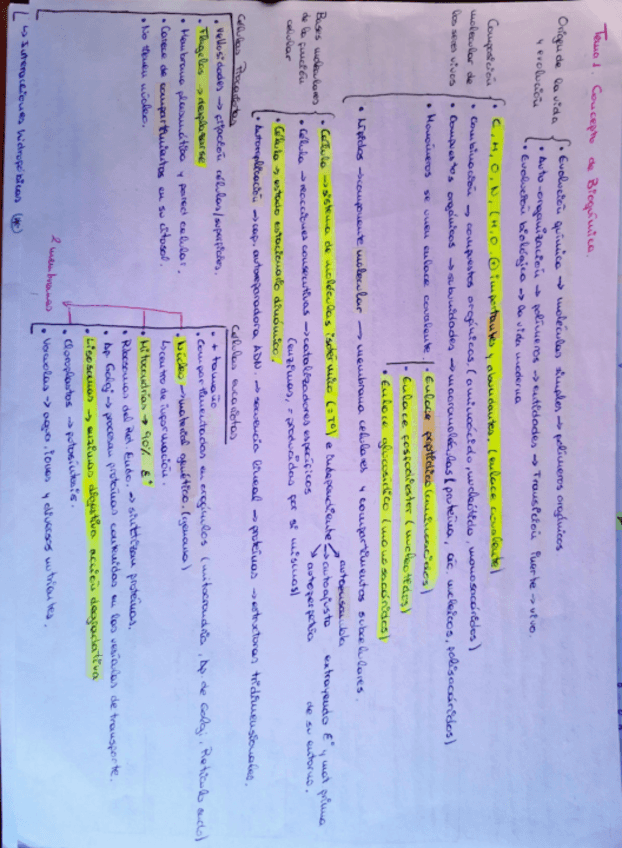 Tema 1. Concepto de Bioquímica.
Origen de la vida y evolución
• Evolución química → moléculas simples → polímeros orgánicos
• Auto-organización → polímeros → entidades → Transición inerte → vivo.
• Evolución biológica → la vida moderna
Composición molecular de los seres vivos
• C, H, O, N, (H2O ⊕ importantes y abundantes, (enlace covalente)
• Combinación → compuestos orgánicos (aminoácido, nucleótido, monosacáridos)
• Compuestos orgánicos → subunidades → macromoléculas (proteína, ác nucleicos, polisacáridos)
• Monómeros se unen enlace covalente.
• Enlace peptídico (aminoácidos)
• Enlace fosfodiester (nucleótidos)
• Enlace glucosídico (monosacáridos)
• Lípidos → componente molecular → membrana celulares y compartimentos subcelulares.
Bases moleculares de la función celular
• Célula → sistema de moléculas isotérmico (=Tª) e independiente → autoensambla
autoajusta
autoperpetúa
extrayendo Eª y mat prima de su entorno.
• Célula → reacciones consecutivas → catalizadores específicos
(enzimas, → producidas por sí mismas)
• Célula → estado estacionario dinámico.
• Autorreplicación → cap. autorreparadora ADN. → secuencia lineal → proteínas → estructuras tridimensionales.
Células Procariotas
• Vellosidades → fijación células/superficies.
• Flagelos → desplazarse
• Membrana plasmática y pared celular.
• Carece de compartimentos en su citosol.
• No tienen núcleo.
Células eucariotas
• + tamaño
• Compartimentadas en orgánulos (mitocondria, Ap. de Golgi, Retículo endo)
• Núcleo → material genético. (genoma)
↳ centro de información.
• Mitocondrias → 90% Eª
• Ribosomas del Ret. Endo. → sintetizan proteínas.
• Ap Golgi → procesan proteínas contenidas en las vesículas de transporte.
• Lisosomas → enzimas digestivas acción degradativa
• Cloroplastos → fotosíntesis.
• Vacuolas → agua, iones y diversos nutrientes.
2 membranas
↳ Interacciones hidrofóbicas